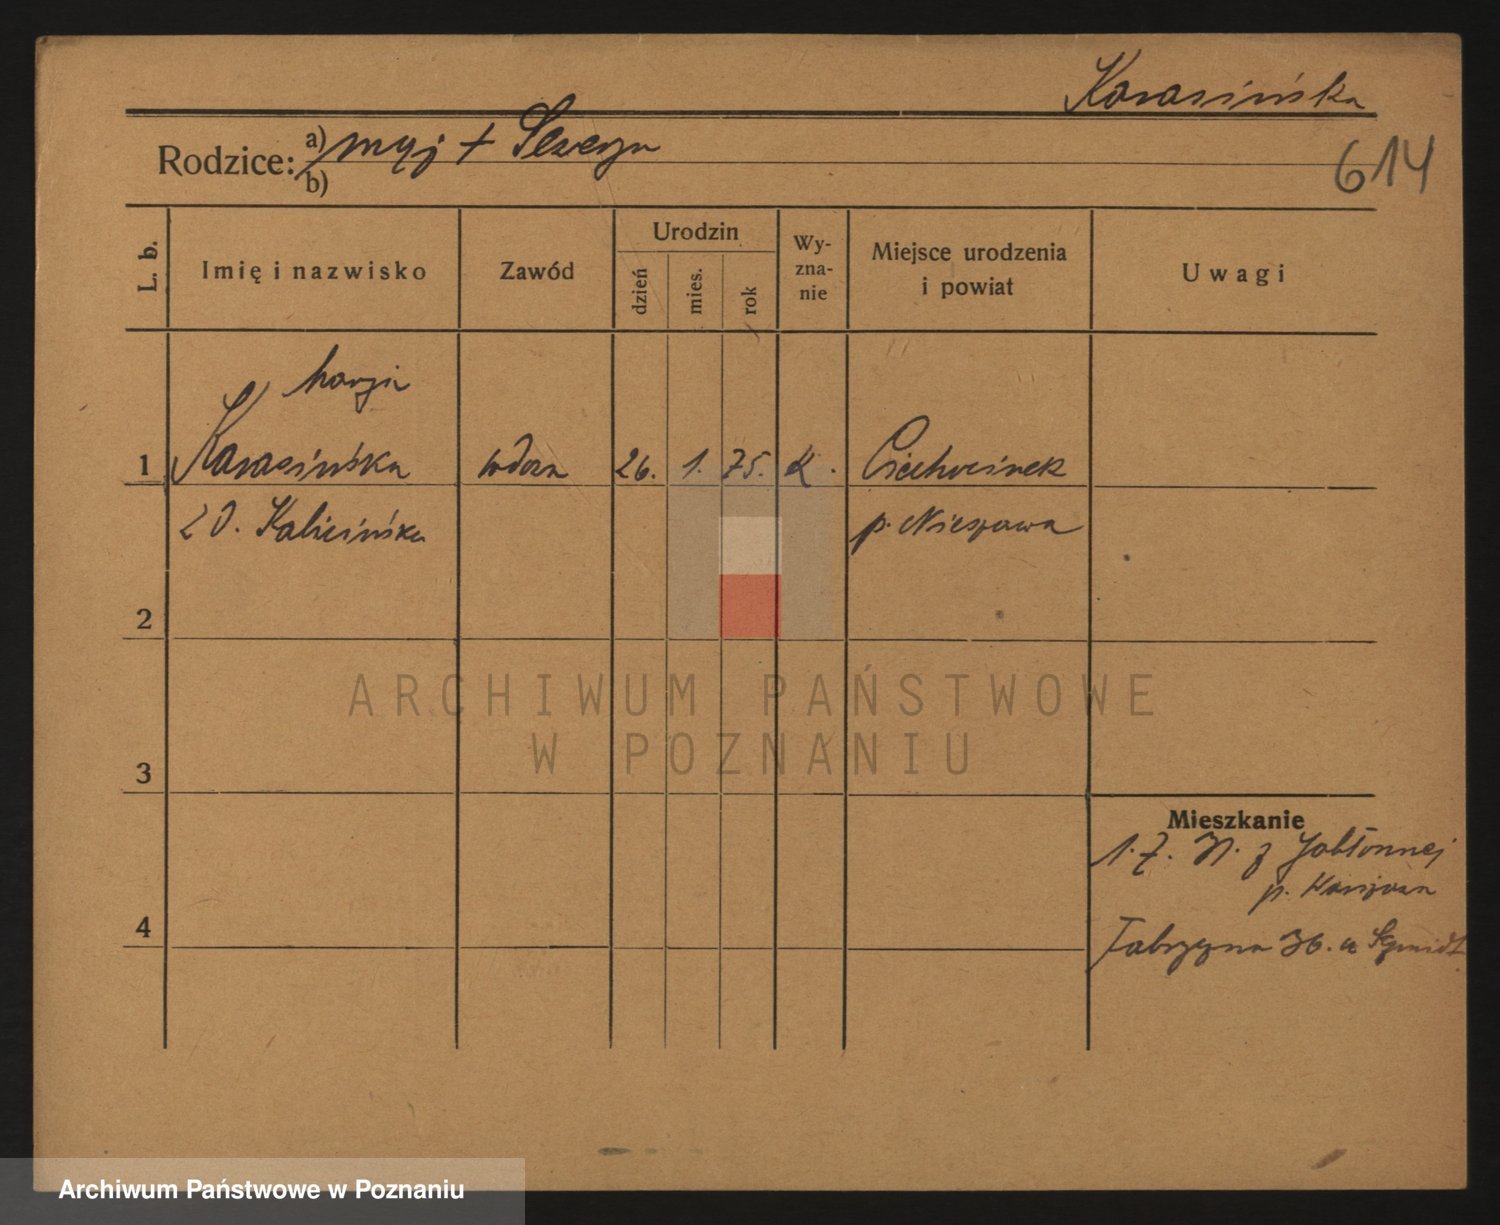 Karasińska
Rodzice: a) mąż + Seweryn
b)
614
L. b.
Imię i nazwisko
Zawód
Urodzin
dzień
mies.
rok
Wy-
zna-
nie
Miejsce urodzenia
i powiat
Uwagi
Marja
1 Karasińska wdowa 26. 1. 75. K. Ciechocinek
z d. Kalicińska p. Nieszawa
2
ARCHIWUM PAŃSTWOWE
W POZNANIU
3
Mieszkanie
z Jabłonnej
p. Warszawa
4
36. u Szmidt
Archiwum Państwowe w Poznaniu